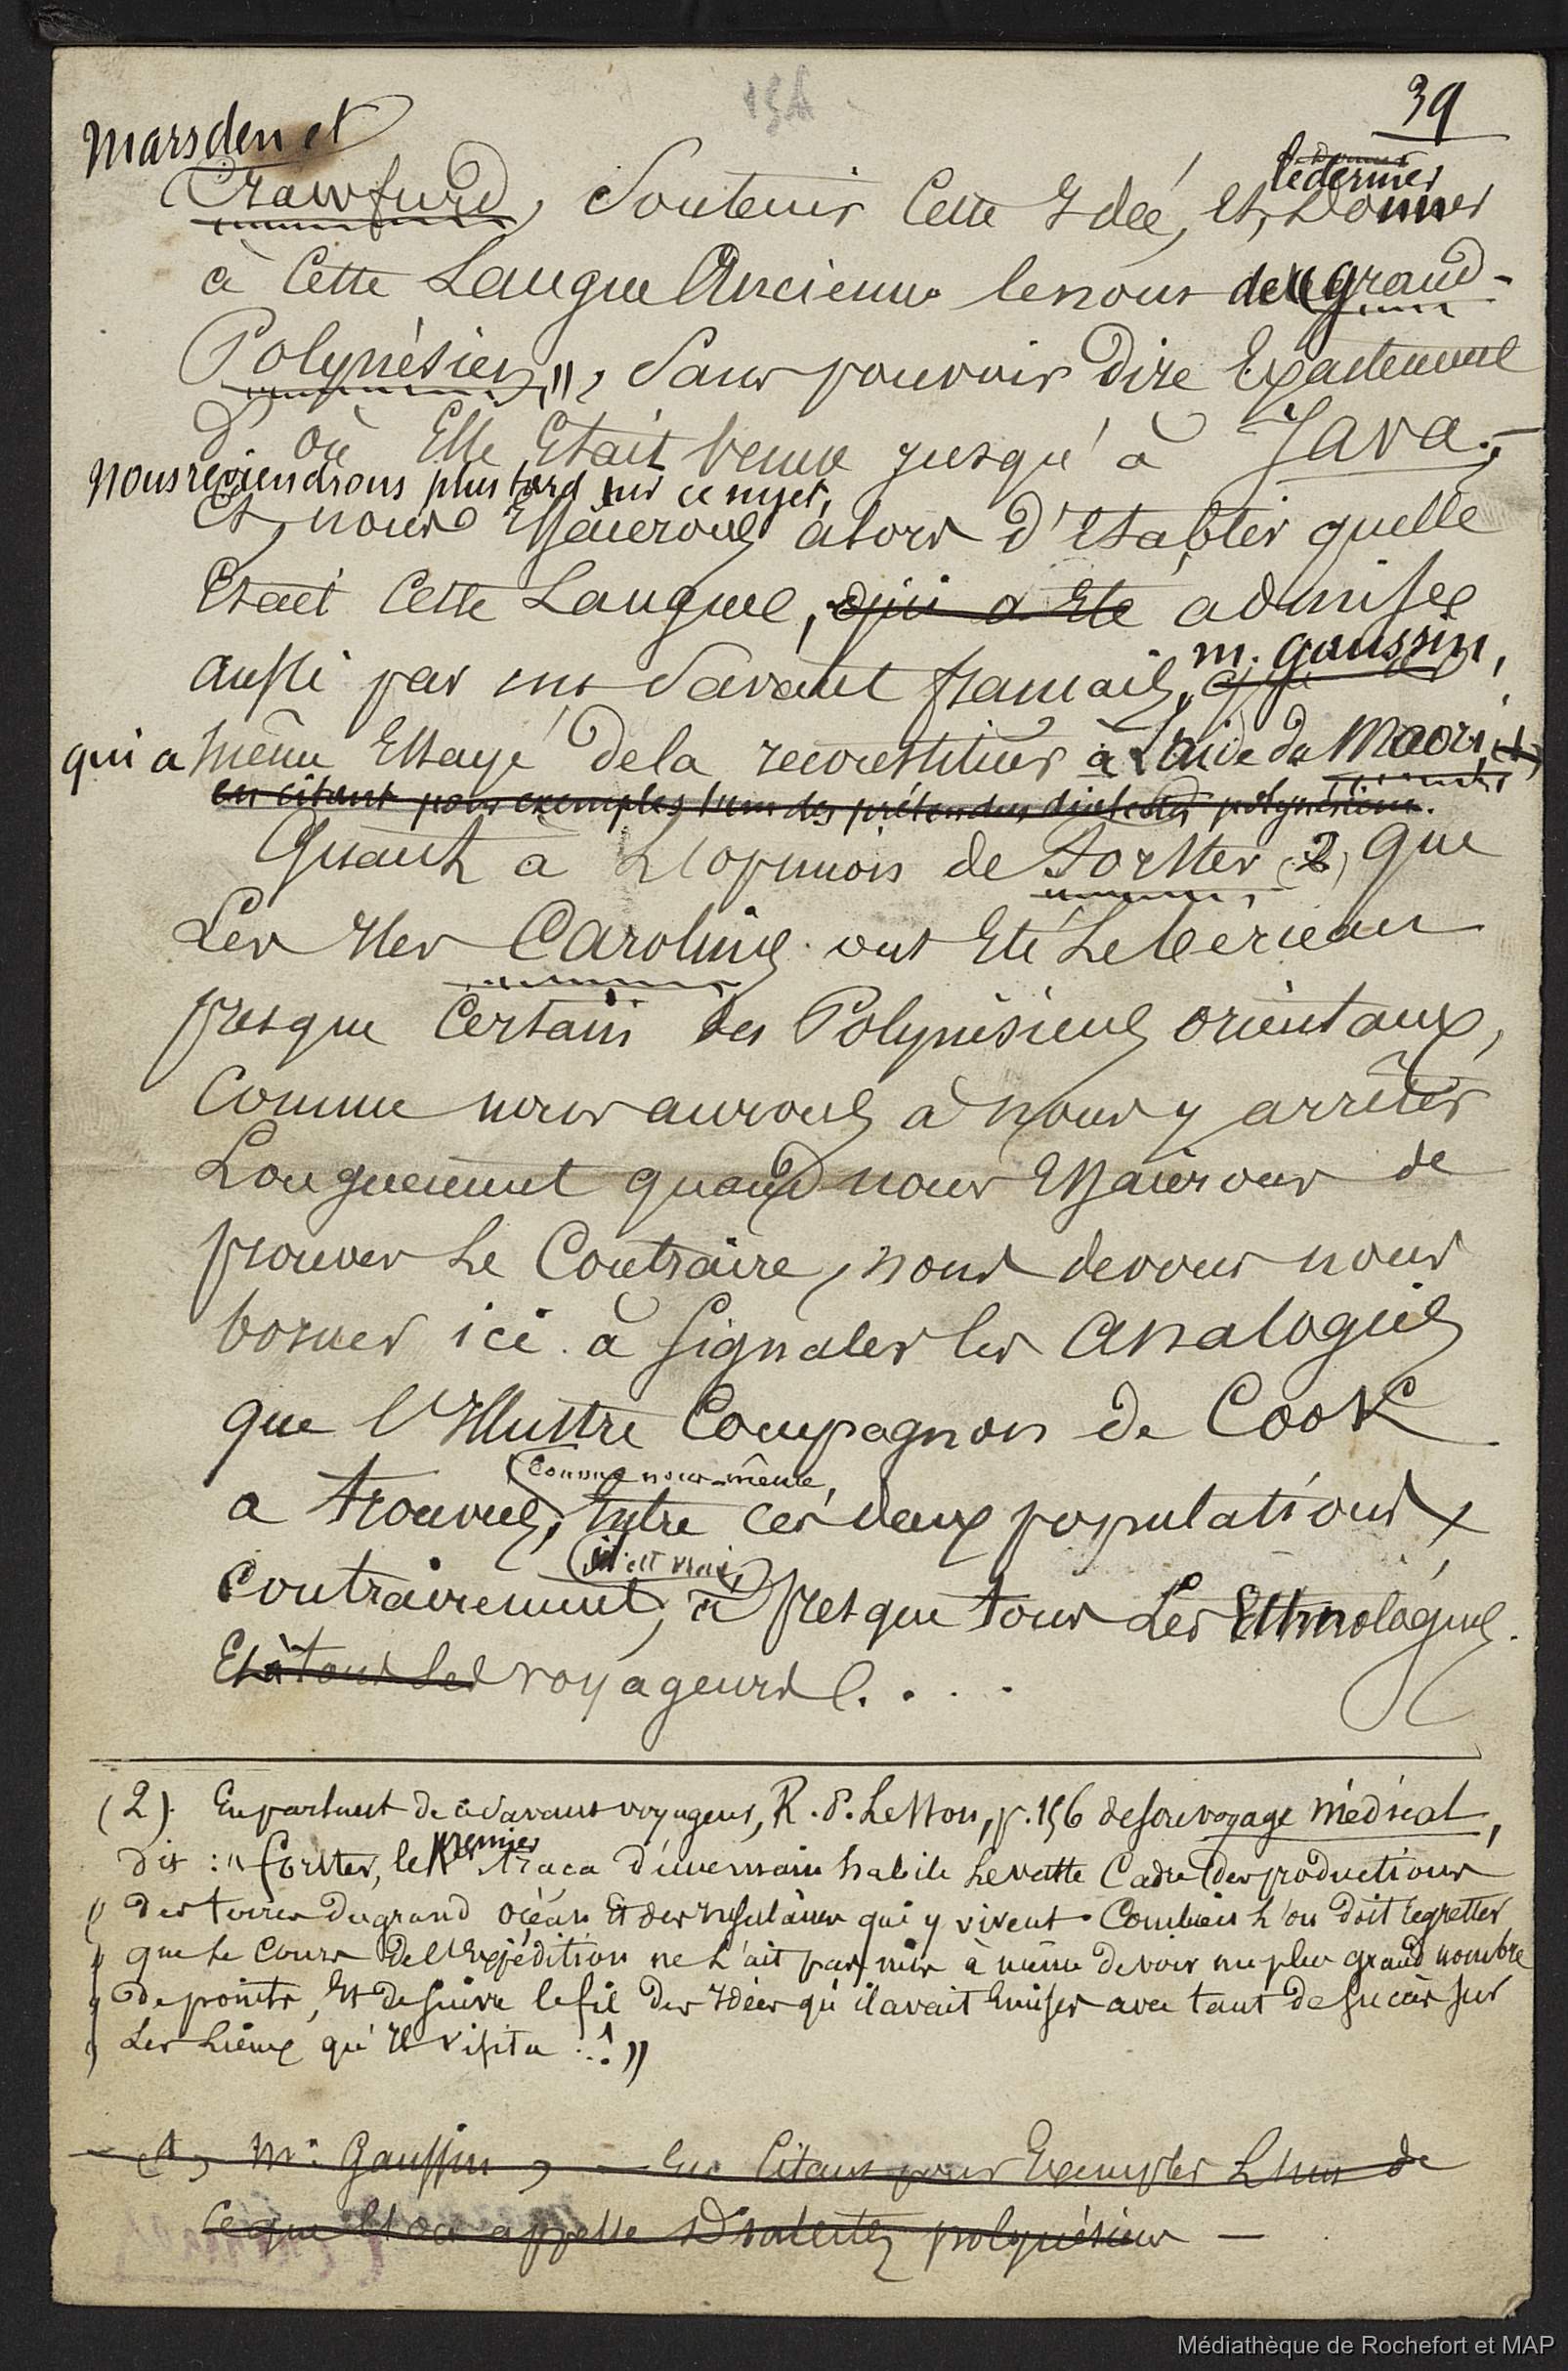 39
Marsden et
le dernier
Crawfurd, Soutenir Cette Idée, Et, Donner
à Cette Langue Ancienne le nom de "grand-
Polynésien", Sans pouvoir Dire Exactement
D'où Elle Etait venue jusqu'à Java.-
nous reviendrons plus tard sur ce sujet,
Et, nous Essaierons alors d'Etablir quelle
Etait Cette Langue, qui a Eté admise
m. gaussin,
aussi par un Savant francais,
qui a même Essayé de la reconstituer à L'aide du Maori (1)
en citant pour exemples l'un des prétendus dialectes polynésiens.
Quant à L'opinion de Forster (2) que
Les Iles Carolines ont Eté Le berceau
presque Certain des Polynésiens orientaux,
Comme nous aurons à nous y arrêter
Longuement quand nous Essaierons de
prouver Le Contraire, nous devons nous
borner ici à Signaler les Analogies
que l'Illustre Compagnon de Cook
(comme nous-même,
a trouvées, Entre ces deux populations
(il est vrai,)
Contrairement, à presque tous Les Ethnologues.
Et à tous les voyageurs. . . .
(2) En parlant de ce Savant voyageur, R. P. Lesson, p. 156 de son voyage médical,
premier
dit : "Forster, le traca d'une main habile Le vaste Cadre des productions
" des terres du grand océan Et des Insulaires qui y vivent. Combien L'on doit regretter
" que Le Cours de l'Expédition ne L'ait pas mis à même de voir un plus grand nombre
" de points, Et de suivre le fil des Idées qu'il avait Emises avec tant de succès sur
" Les Lieux qu'Il visita ..!"
(1) Mr. Gaussin, - En Citant pour Exemples L'un de
ce que l'on appelle Dialectes polynésiens -
Médiathèque de Rochefort et MAP